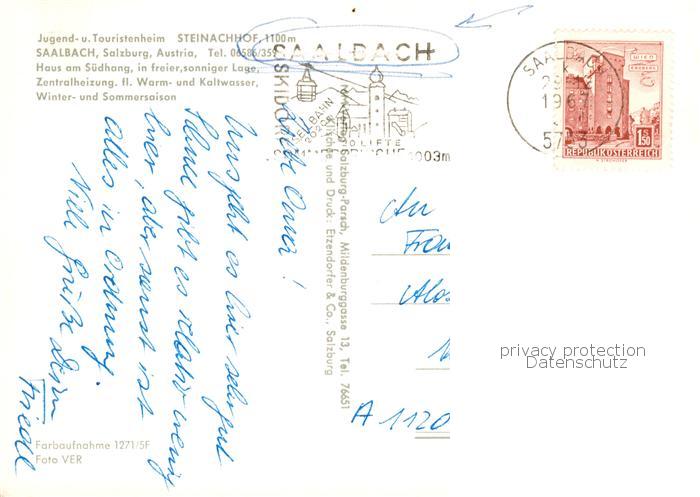 Jugend- u. Touristenheim STEINACHHOF, 1100 m
SAALBACH, Salzburg, Austria, Tel. 06586/359
Haus am Südhang, in freier, sonniger Lage,
Zentralheizung. fl. Warm- und Kaltwasser,
Winter- und Sommersaison
SAALBACH
SKIDORF
SEILBAHN
LIFTE
1003m
SAALBACH
196
REPUBLIK ÖSTERREICH
WIEN
ERDBERG
1.50
Liebe Oma!
Uns geht es hier sehr gut
gibt es relativ wenig
hier, aber sonst ist
alles in Ordnung.
Viele Grüße Dein
Friedl
Salzburg-Parsch, Mildenburggasse 13, Tel. 76651
und Druck: Etzendorfer & Co., Salzburg
An
Frau
Alo
A 1120
privacy protection
Datenschutz
Farbaufnahme 1271/5F
Foto VER